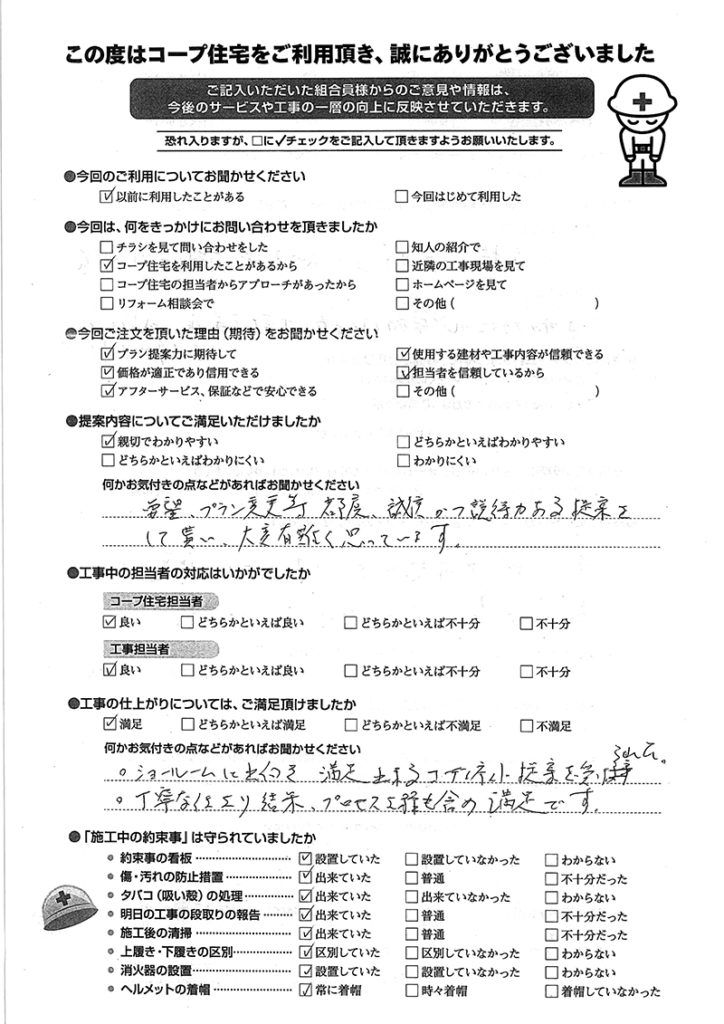 この度はコープ住宅をご利用頂き、誠にありがとうございました
ご記入いただいた組合員様からのご意見や情報は、
今後のサービスや工事の一層の向上に反映させていただきます。
恐れ入りますが、□に✓チェックをご記入して頂きますようお願いいたします。
●今回のご利用についてお聞かせください
☑以前に利用したことがある □今回はじめて利用した
●今回は、何をきっかけにお問い合わせを頂きましたか
□チラシを見て問い合わせをした □知人の紹介で
☑コープ住宅を利用したことがあるから □近隣の工事現場を見て
□コープ住宅の担当者からアプローチがあったから □ホームページを見て
□リフォーム相談会で □その他( )
●今回ご注文を頂いた理由(期待)をお聞かせください
☑プラン提案力に期待して ☑使用する建材や工事内容が信頼できる
☑価格が適正であり信用できる ☑担当者を信頼しているから
☑アフターサービス、保証などで安心できる □その他( )
●提案内容についてご満足いただけましたか
☑親切でわかりやすい □どちらかといえばわかりやすい
□どちらかといえばわかりにくい □わかりにくい
何かお気付きの点などがあればお聞かせください
希望、プラン変更等 都度、誠実かつ説得力ある提案を
して貰い、大変有難く思っています。
●工事中の担当者の対応はいかがでしたか
コープ住宅担当者
☑良い □どちらかといえば良い □どちらかといえば不十分 □不十分
工事担当者
☑良い □どちらかといえば良い □どちらかといえば不十分 □不十分
●工事の仕上がりについては、ご満足頂けましたか
☑満足 □どちらかといえば満足 □どちらかといえば不満足 □不満足
何かお気付きの点などがあればお聞かせください
○ショールームに出向き 満足出来るコーディネート提案を受け
○丁寧な仕上り結果、プロセス 含め満足です。
●「施工中の約束事」は守られていましたか
●約束事の看板 ☑設置していた □設置していなかった □わからない
●傷・汚れの防止措置 ☑出来ていた □普通 □不十分だった
●タバコ(吸い殻)の処理 ☑出来ていた □出来ていなかった □わからない
●明日の工事の段取りの報告 ☑出来ていた □普通 □不十分だった
●施工後の清掃 ☑出来ていた □普通 □不十分だった
●上履き・下履きの区別 ☑区別していた □区別していなかった □わからない
●消火器の設置 ☑設置していた □設置していなかった □わからない
●ヘルメットの着帽 ☑常に着帽 □時々着帽 □着帽していなかった